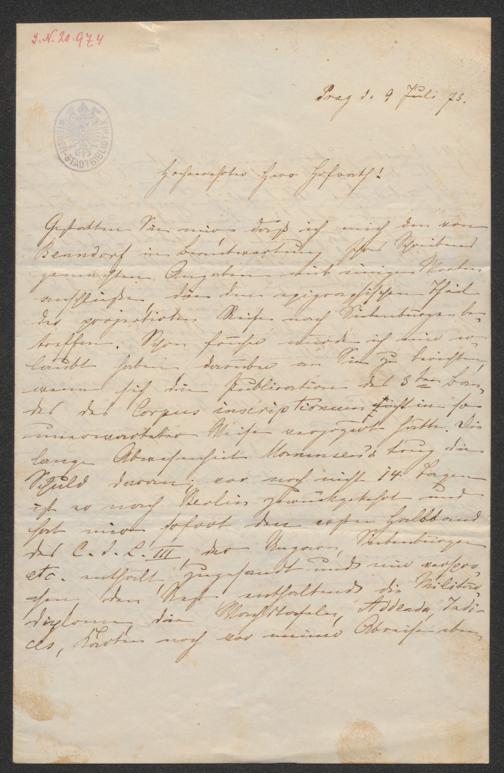 J.N. 20.974
Prag d. 9 Juli 73.
Hochverehrter Herr Hofrath!
Gestatten Sie mir daß ich mich den von
Benndorf in Beantwortung Ihres Schreibens
gemachten Angaben mit einigen Worten
anschließe, die den epigraphischen Theil
der projectirten Reise nach Siebenbürgen be-
treffen. Schon früher würde ich mir er-
laubt haben darüber an Sie zu berichten,
wenn sich die Publication des 3ten Ban-
des des Corpus inscriptionum nicht in so
unerwarteter Weise verzögert hätte. Die
lange Abwesenheit Mommsens trug die
Schuld daran; vor noch nicht 14 Tagen
ist er nach Berlin zurückgekehrt und
hat mir sofort den ersten Halbband
des C. I. L. III, der Ungarn, Siebenbürgen
etc. enthält, zugesandt und mir verspro-
chen den Rest enthaltend die Militär-
diplome, die Wachstafeln, Addenda, Indi-
ces, Karten noch vor meiner Abreise